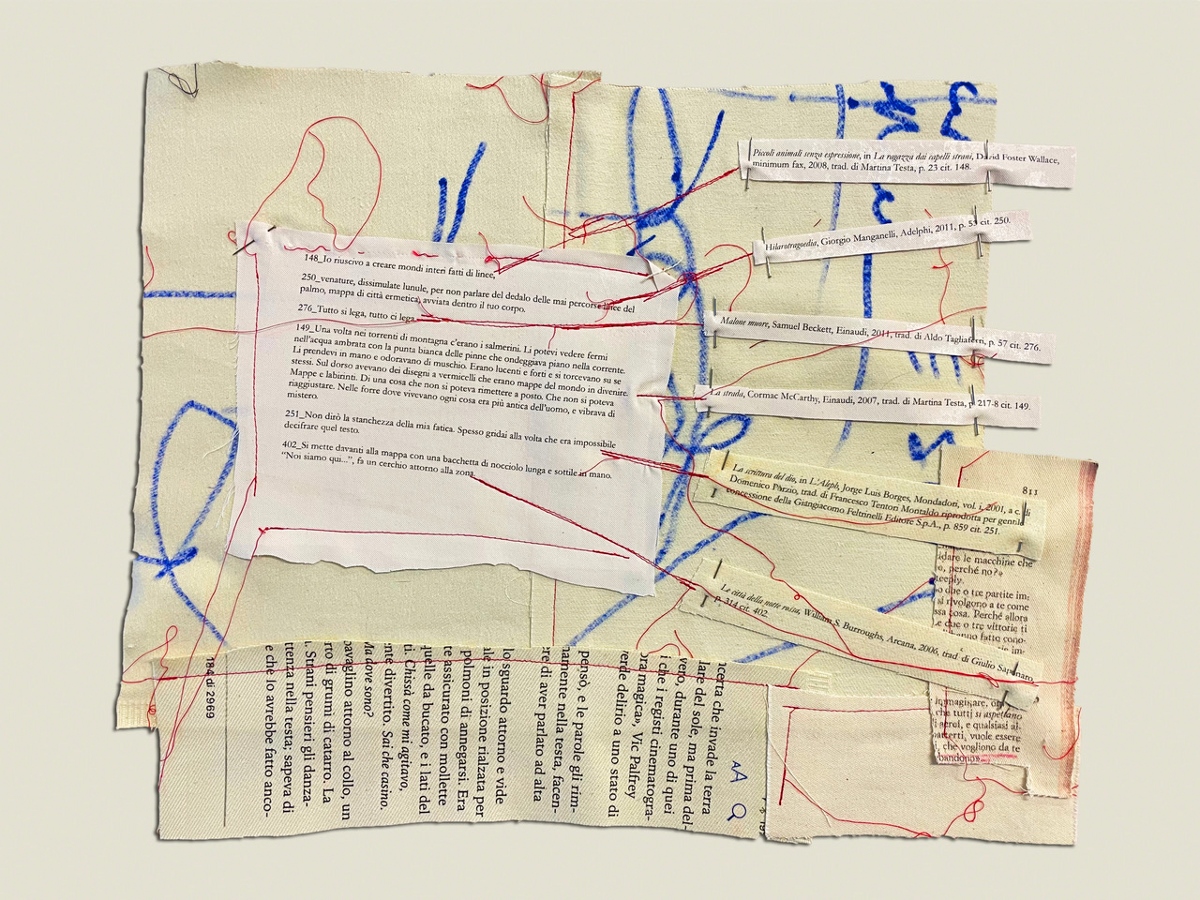 148_Io riuscivo a creare mondi interi fatti di linee,
250_venature, dissimulate lunule, per non parlare del dedalo delle mai percorse linee del
palmo, mappa di città ermetica, avviata dentro il tuo corpo.
276_Tutto si lega, tutto ci lega
149_Una volta nei torrenti di montagna c'erano i salmerini. Li potevi vedere fermi
nell'acqua ambrata con la punta bianca delle pinne che ondeggiava piano nella corrente.
Li prendevi in mano e odoravano di muschio. Erano lucenti e forti e si torcevano su se
stessi. Sul dorso avevano dei disegni a vermicelli che erano mappe del mondo in divenire.
Mappe e labirinti. Di una cosa che non si poteva rimettere a posto. Che non si poteva
riaggiustare. Nelle forre dove vivevano ogni cosa era più antica dell'uomo, e vibrava di
mistero.
251_Non dirò la stanchezza della mia fatica. Spesso gridai alla volta che era impossibile
decifrare quel testo.
402_Si mette davanti alla mappa con una bacchetta di nocciolo lunga e sottile in mano.
“Noi siamo qui...”, fa un cerchio attorno alla zona
Piccoli animali senza espressione, in La ragazza dai capelli strani, David Foster Wallace,
minimum fax, 2008, trad. di Martina Testa, p. 23 cit. 148.
Hilarotragoedia, Giorgio Manganelli, Adelphi, 2011, p. 53 cit. 250.
Malone muore, Samuel Beckett, Einaudi, 2011, trad. di Aldo Tagliaferri, p. 57 cit. 276.
La strada, Cormac McCarthy, Einaudi, 2007, trad. di Martina Testa, p. 217-8 cit. 149.
La scrittura del dio, in L'Aleph, Jorge Luis Borges, Mondadori, vol. i, 2001, a c. di
Domenico Porzio, trad. di Francesco Tentori Montaldo riprodotta per gentile
concessione della Giangiacomo Feltrinelli Editore S.p.A., p. 859 cit. 251.
La città della notte rossa, William S. Burroughs, Arcana, 2006, trad. di Giulio Saponaro,
p. 314 cit. 402.
811
idare le macchine che
o, perché no?»
eeply.
o due o tre partite im-
si rivolgono a te come
ssa cosa. Perché allora
e due o tre vittorie ti
hanno fatto cono-
immaginare, o
che tutti si aspettano
i aerei, e qualsiasi al-
atterti, vuole essere
i, che vogliono da te
bandono
ncerta che invade la terra
lare del sole, ma prima del-
vero, durante uno di quei
i che i registi cinematogra-
ora magica». Vic Palfrey
verde delirio a uno stato di
pensò, e le parole gli rim-
namente nella testa, facen-
re di aver parlato ad alta
lo sguardo attorno e vide
le in posizione rialzata per
polmoni di annegarsi. Era
te assicurato con mollette
uelle da bucato, e i lati del
ti. Chissà come mi agitavo,
nte divertito. Sai che casino.
Ma dove sono?
avaglino attorno al collo, un
rto di grumi di catarro. La
. Strani pensieri gli danza-
ttenza nella testa; sapeva di
e che lo avrebbe fatto anco-
184 di 2969
AA